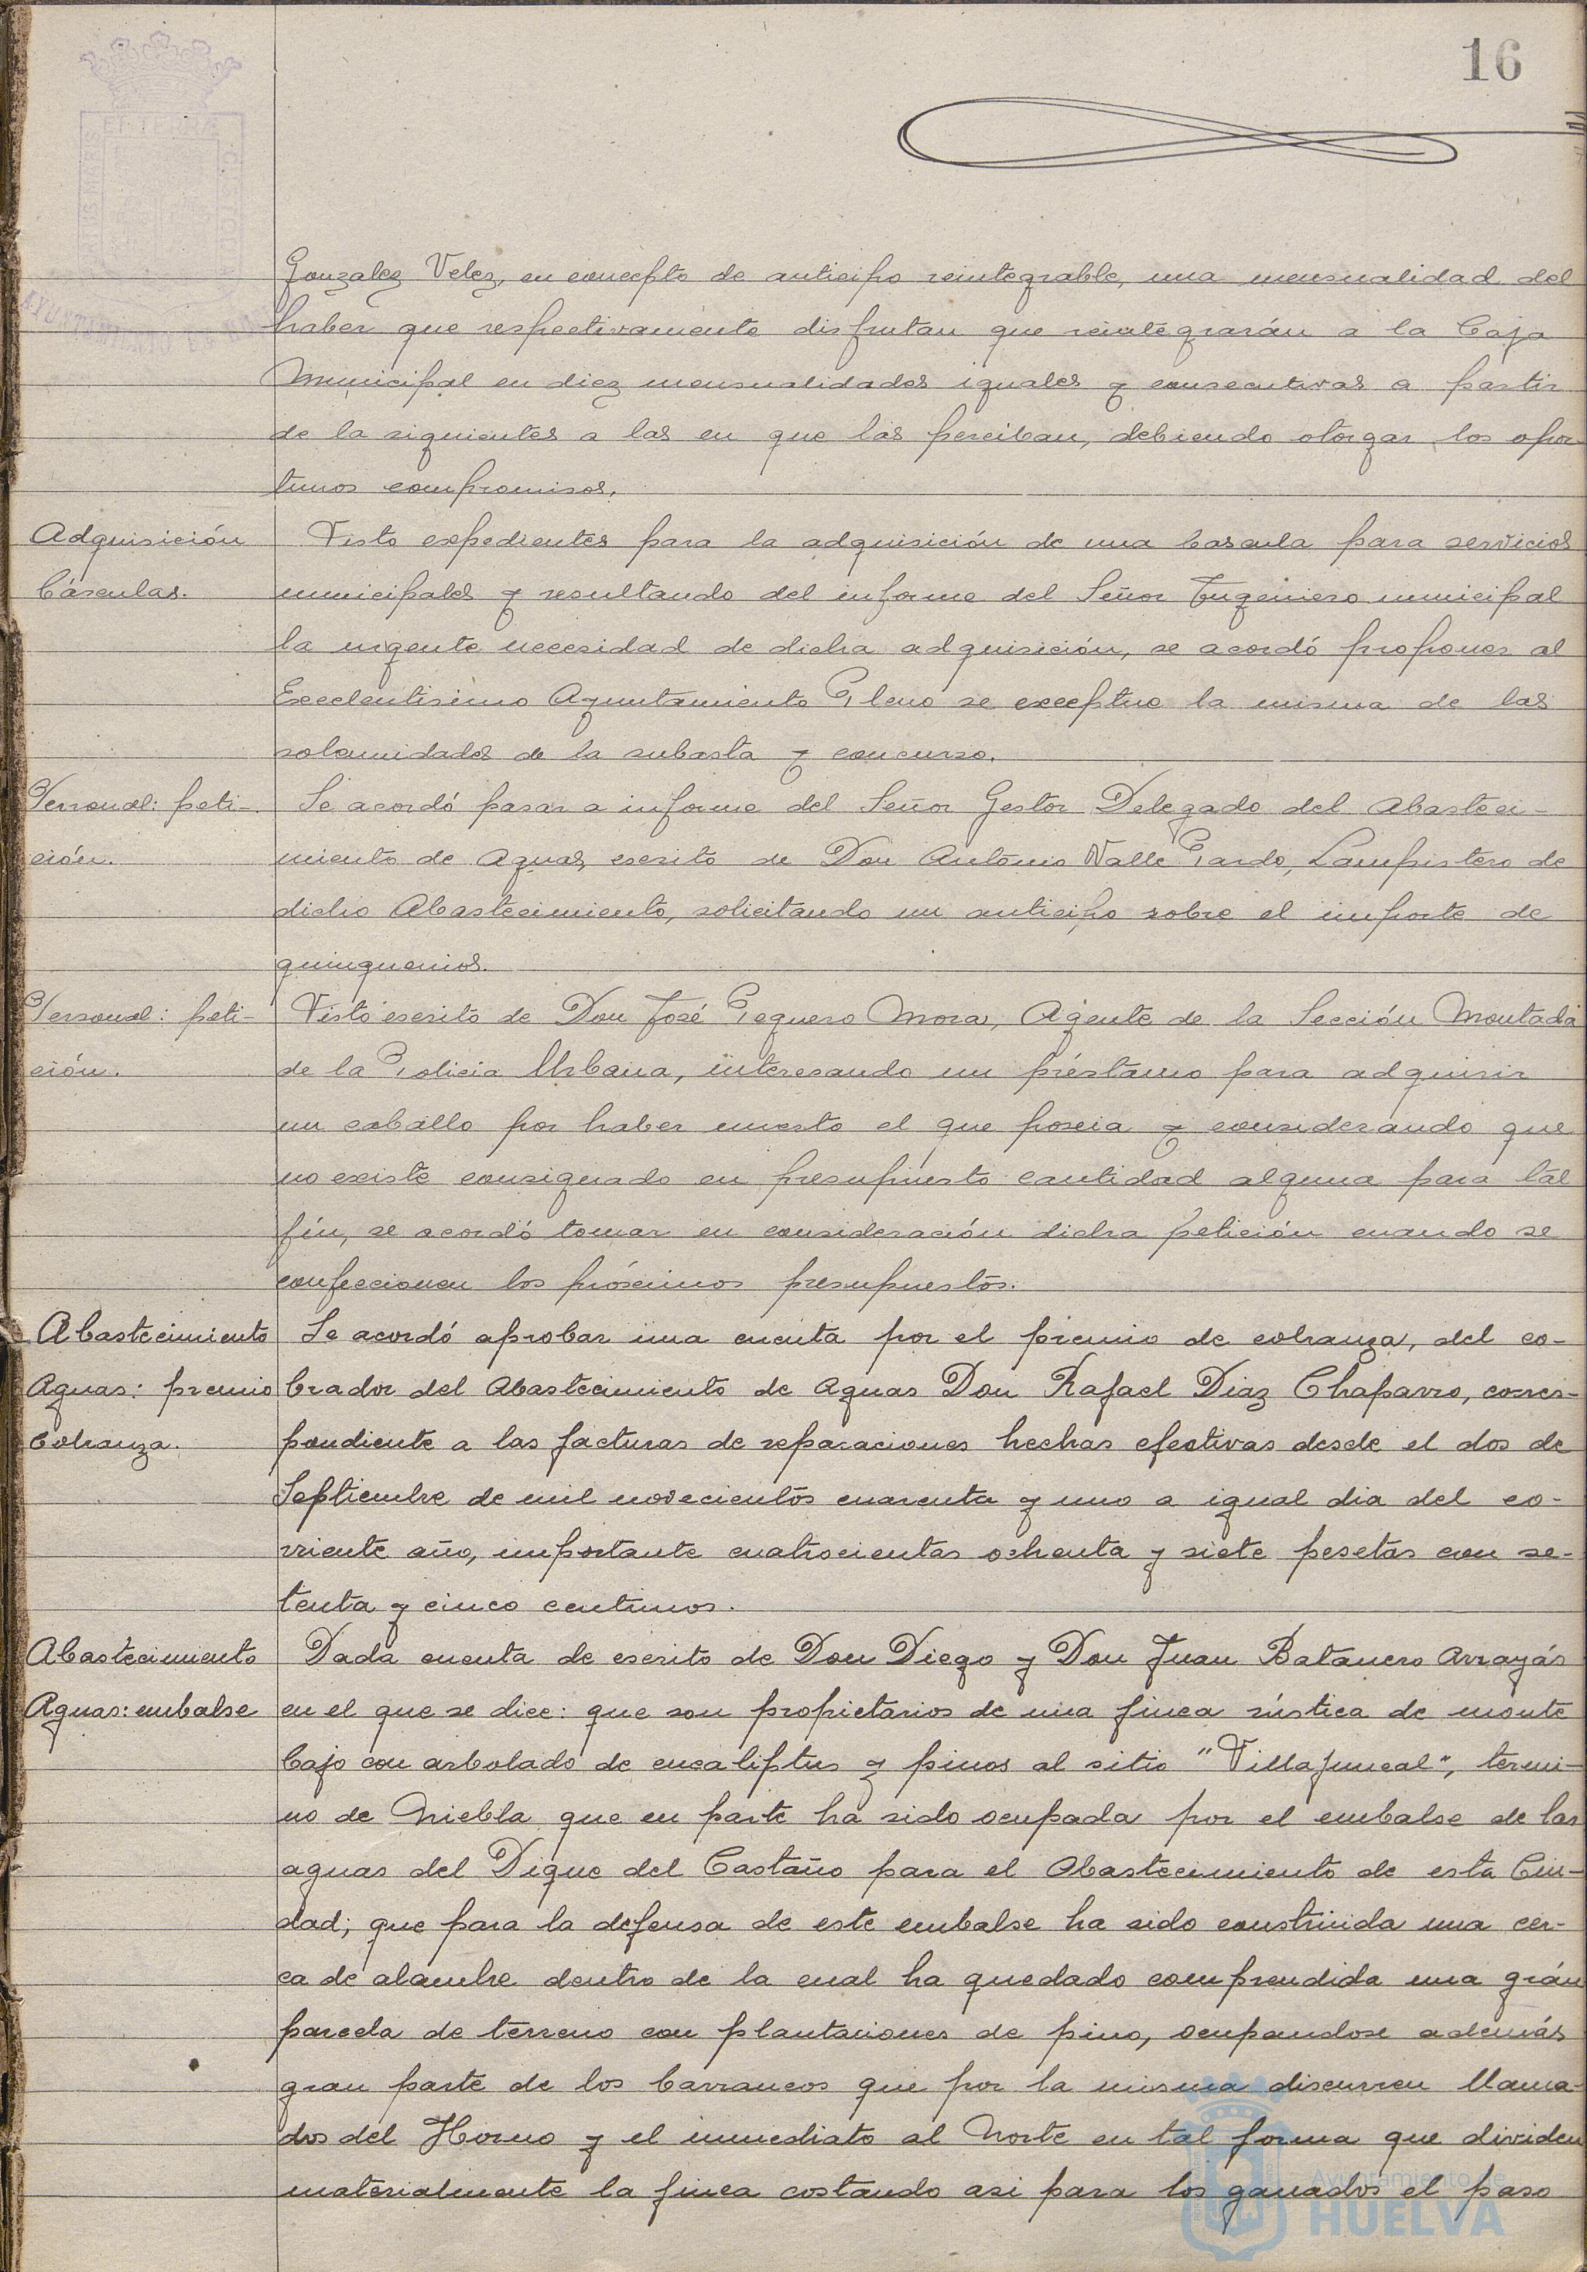 16
Gonzalez Velez, en concepto de anticipo reintegrable, una mensualidad del
haber que respectivamente disfrutan que reintegrarán a la Caja
Municipal en diez mensualidades iguales y consecutivas a partir
de la siguientes a las en que las perciban, debiendo otorgar los opor-
tunos compromisos.
Adquisición
Básculas.
Visto expedientes para la adquisición de una bascula para servicios
municipales y resultando del informe del Señor Ingeniero municipal
la urgente necesidad de dicha adquisición, se acordó proponer al
Excelentisimo Ayuntamiento Pleno se exceptue la misma de las
solemnidades de la subasta y concurso.
Personal: peti-
ción.
Se acordó pasar a informe del Señor Gestor Delegado del Abasteci-
miento de Aguas, escrito de Don Antonio Valle Pardo, Lampistero de
dicho Abastecimiento, solicitando un anticipo sobre el importe de
quinquenios.
Personal: peti-
ción.
Visto escrito de Don José Peguero Mora, Agente de la Sección Montada
de la Policia Urbana, interesando un préstamo para adquirir
un caballo por haber muerto el que poseia y considerando que
no existe consignado en presupuesto cantidad alguna para tal
fín, se acordó tomar en consideración dicha petición cuando se
confeccionen los próximos presupuestos.
Abastecimiento
Aguas: premio
Cobranza.
Se acordó aprobar una cuenta por el premio de cobranza, del co-
brador del Abastecimiento de Aguas Don Rafael Diaz Chaparro, corres-
pondiente a las facturas de reparaciones hechas efectivas desde el dos de
Septiembre de mil novecientos cuarenta y uno a igual dia del co-
rriente año, importante cuatrocientas ochenta y siete pesetas con se-
tenta y cinco centimos.
Abastecimiento
Aguas: embalse
Dada cuenta de escrito de Don Diego y Don Juan Batanero Arrayás
en el que se dice: que son propietarios de una finca rústica de monte
bajo con arbolado de eucaliptus y pinos al sitio "Villajuncal", termi-
no de Niebla que en parte ha sido ocupada por el embalse de las
aguas del Dique del Castaño para el Abastecimiento de esta Ciu-
dad; que para la defensa de este embalse ha sido construida una cer-
ca de alambre dentro de la cual ha quedado comprendida una grán
parcela de terreno con plantaciones de pino, ocupandose además
gran parte de los barrancos que por la misma discurren llama-
dos del Horno y el inmediato al Norte en tal forma que dividen
materialmente la finca costando asi para los ganados el paso
Ayuntamiento de
HUELVA